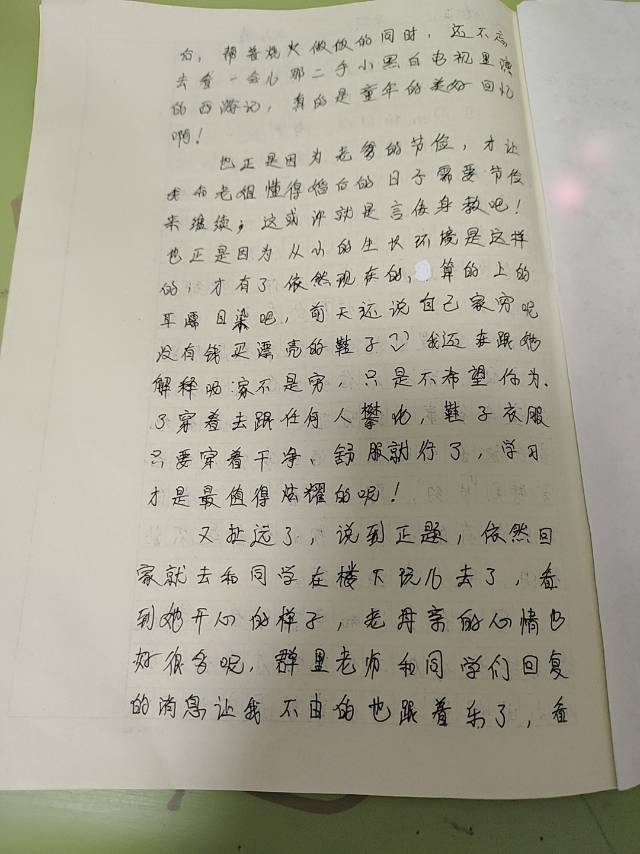 台，帮着烧火做饭的同时，还不忘
去看一会儿那二手小黑白电视里演
的西游记，真的是童年的美好回忆
啊！
也正是因为老爹的节俭，才让
我和老姐懂得婚后的日子需要节俭
来继续，这或许就是言传身教吧！
也正是因为从小的生长环境是这样
的，才有了依然现在的，算的上的
耳濡目染吧，前天还说自己家穷呢
没有钱买漂亮的鞋子 我还在跟她
解释呢：家不是穷，只是不希望你为
了穿着去跟任何人攀比，鞋子衣服
只要穿着干净、舒服就行了，学习
才是最值得炫耀的呢！
又扯远了，说到正题，依然回
家就去和同学在楼下玩儿去了，看
到她开心的样子，老母亲的心情也
好很多呢，群里老师和同学们回复
的消息让我不由的也跟着乐了，看